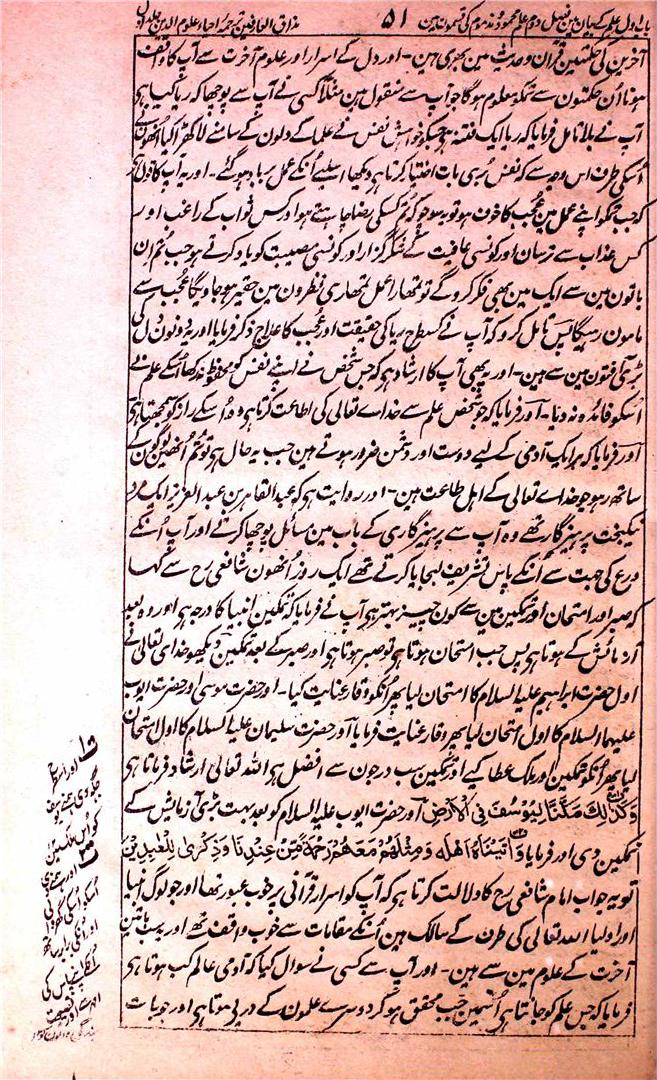 باب اول علم کے بیان مین فصل دوم علم محمود و مذموم کی قسمون مین ۵۱ مذاق العارفین ترجمہ احیاء علوم الدین جلد اول
آخرین کی حکمتین قرآن وحدیث مین بھری ہین۔ اور دل کے اسرار اور علوم آخرت سے آپ کا واقف
ہونا اُن حکمتون سے تمکو معلوم ہو گا جو آپ سے منقول ہین مثلاً کسی نے آپ سے پوچھا کہ ریا کیا ہی
آپ نے بلا تامل فرمایا کہ ریا ایک فتنہ ہی جسکو خواہش نفس نے علما کے دلون کے سامنے لا کھڑا کیا اُنھون نے
اُسکی طرف اس وجہ سے کہ نفس بُری بات اختیار کرتا ہی دیکھا اسلیے اُنکے عمل برباد ہو گئے۔ اور یہ آپ کا قول ہی
کہ جب تمکو اپنے عمل مین عُجب کا خوف ہو تو یہ سوچو کہ تم کسکی رضا چاہتے ہو اور کس ثواب کے راغب اور
کس عذاب سے ترسان اور کونسی عافیت کے شکر گزار اور کونسی مصیبت کو یاد کرتے ہو جب تم ان
باتون مین سے ایک مین بھی فکر کرو گے تو تمھارا عمل تمھاری نظرون مین حقیر ہو جاویگا عُجب سے
مامون رہیگا پس تامل کرو کہ آپ نے کسطرح ریا کی حقیقت اور عُجب کا علاج ذکر فرمایا اور یہ دونون دل کی
بڑی آفتون مین سے ہین۔ اور یہ بھی آپ کا ارشاد ہی کہ جس شخص نے اپنے نفس کو محفوظ نہ رکھا اُسکے علم نے
اُسکو فائدہ نہ دیا۔ اور فرمایا کہ جو شخص علم سے خداے تعالی کی اطاعت کرتا ہی وہ اُسکے راز کو سمجھتا ہی
اور فرمایا کہ ہر ایک آدمی کے لیے دوست اور دشمن ضرور ہوتے ہین جب یہ حال ہی تو تم اُنھین لوگون کے
ساتھ رہو جو خداے تعالی کے اہل طاعت ہین۔ اور روایت ہی کہ عبد القاہر بن عبد العزیز ایک مرد
نیکبخت پرہیزگار تھے وہ آپ سے پرہیزگاری کے باب مین مسائل پوچھا کرتے اور آپ اُنکے
ورع کی جہت سے اُنکے پاس تشریف لیجایا کرتے تھے ایک روز اُنھون شافعی رح سے کہا
کہ صبر اور امتحان اور تمکین مین سے کون چیز بہتر ہی آپ نے فرمایا کہ تمکین انبیا کا درجہ ہی اور وہ بعد
آزمائش کے ہوتا ہی پس جب امتحان ہوتا ہی تو صبر ہوتا ہی اور صبر کے بعد تمکین دیکھو خداى تعالی نے
اول حضرت ابراہیم علیہ السلام کا امتحان لیا پھر اُنکو وقار عنایت کیا۔ اور حضرت موسی اور حضرت ایوب
علیہما السلام کا اول امتحان لیا پھر وقار عنایت فرمایا اور حضرت سلیمان علیہ السلام کا اول امتحان
لیا پھر اُنکو تمکین اور ملک عطا کیے اور تمکین سب درجون سے افضل ہی اللہ تعالی ارشاد فرماتا ہی
وَكَذٰلِكَ مَكَّنَّا لِيُوسُفَ فِي الْاَرْضِ اور حضرت ایوب علیہ السلام کو بعد بہت بڑی آزمایش کے
تمکین دی اور فرمایا وَاٰتَيْنَاهُ اَهْلَهٗ وَمِثْلَهُمْ مَعَهُمْ رَحْمَةً مِّنْ عِنْدِنَا وَذِكْرٰى لِلْعٰبِدِيْنَ
تو یہ جواب امام شافعی رح کا دلالت کرتا ہی کہ آپ کو اسرار قرآنی پر خوب عبور تھا اور جو لوگ انبیا
اور اولیا اللہ تعالی کی طرف کے سالک ہین اُنکے مقامات سے خوب واقف تھے اور یہ سب باتین
آخرت کے علوم مین سے ہین۔ اور آپ سے کسی نے سوال کیا کہ آدمی عالم کب ہوتا ہی
فرمایا کہ جس علم کو جانتا ہی اُسمین جب محقق ہو کر دوسرے علمون کے درپی ہوتا ہی اور جو بات
ف۱ اور اسی طرح
جگہ دی ہمنے یوسف
کو اُس ملک مین
ف۲ اور ہمنے دی
اُسکو اُسکی گھر والی
اور اُنکی برابر ساتھ
اُنکے اپنے پاس کی